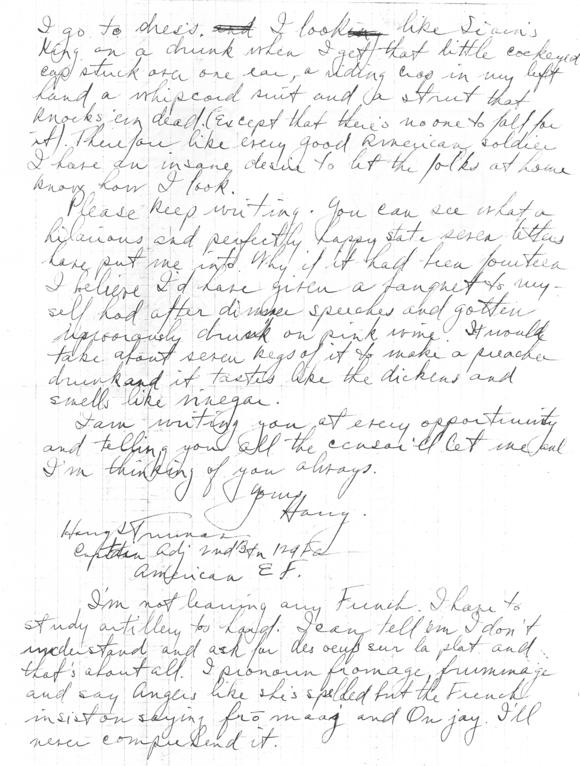 I go to dress. and I looking like Siam's
King on a drunk when I get that little cockeyed
cap stuck over one ear, a riding crop in my left
hand a whipcord suit and a strut that
knocks 'em dead. (Except that there's no one to fall for
it). Therefore like every good American soldier
I have an insane desire to let the folks at home
know how I look.
Please keep writing. You can see what a
hilarious and perfectly happy state seven letters
have put me into. Why if it had been fourteen
I believe I'd have given a banquet to my-
self had after dinner speeches and gotten
uproorgusly drunk on pink wine. It would
take about seven kegs of it to make a preacher
drunk and it tastes like the dickens and
smells like vinegar.
I am writing you at every opportunity
and telling you all the censor'll let me and
I'm thinking of you always.
Yours,
Harry.
Harry S Truman
Captain Adj 2nd Btn 129 FA
American E F.
I'm not learning any French. I have to
study artillery too hard. I can tell 'em I don't
understand and ask for des oeufs sur la plat and
that's about all. I pronoun fromage, frummage
and say Angers like she's spelled but the French
insist on saying fro maag and On jay. I'll
never comprehend it.